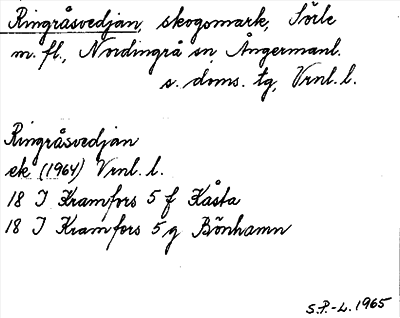 Ringråsvedjan, skogsmark, Sörle
m. fl., Nordingrå sn, Ångermanl.
s. doms. tg, Vrnl. l.
Ringråsvedjan
ek (1964) Vrnl. l.
18 I Kramfors 5 f Kåsta
18 I Kramfors 5 g Bönhamn
S.P.-L. 1965